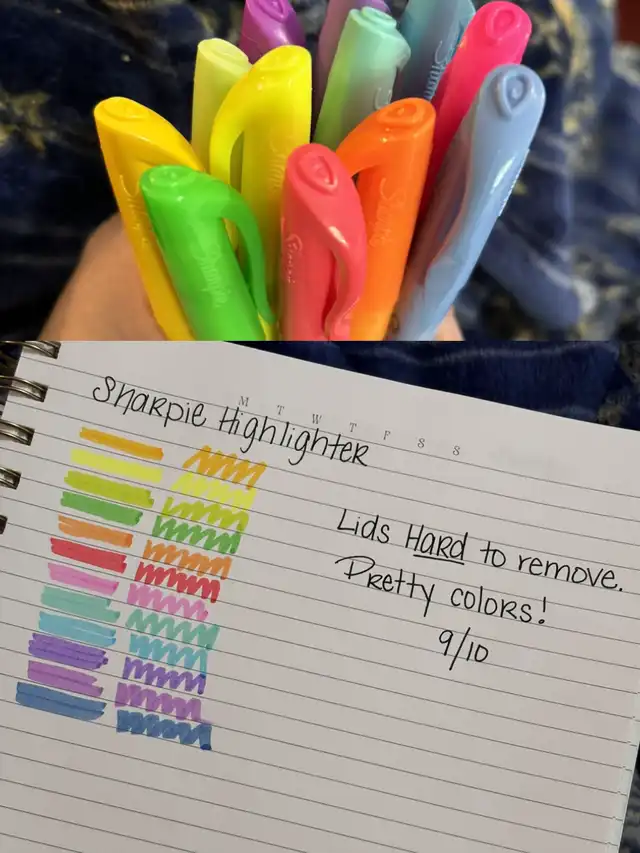 Sharpie
Sharpie
Sharpie
Sharpie
Sharpie
Sharpie
M T W T F S S
Sharpie Highlighter
Lids Hard to remove.
Pretty colors!
9/10